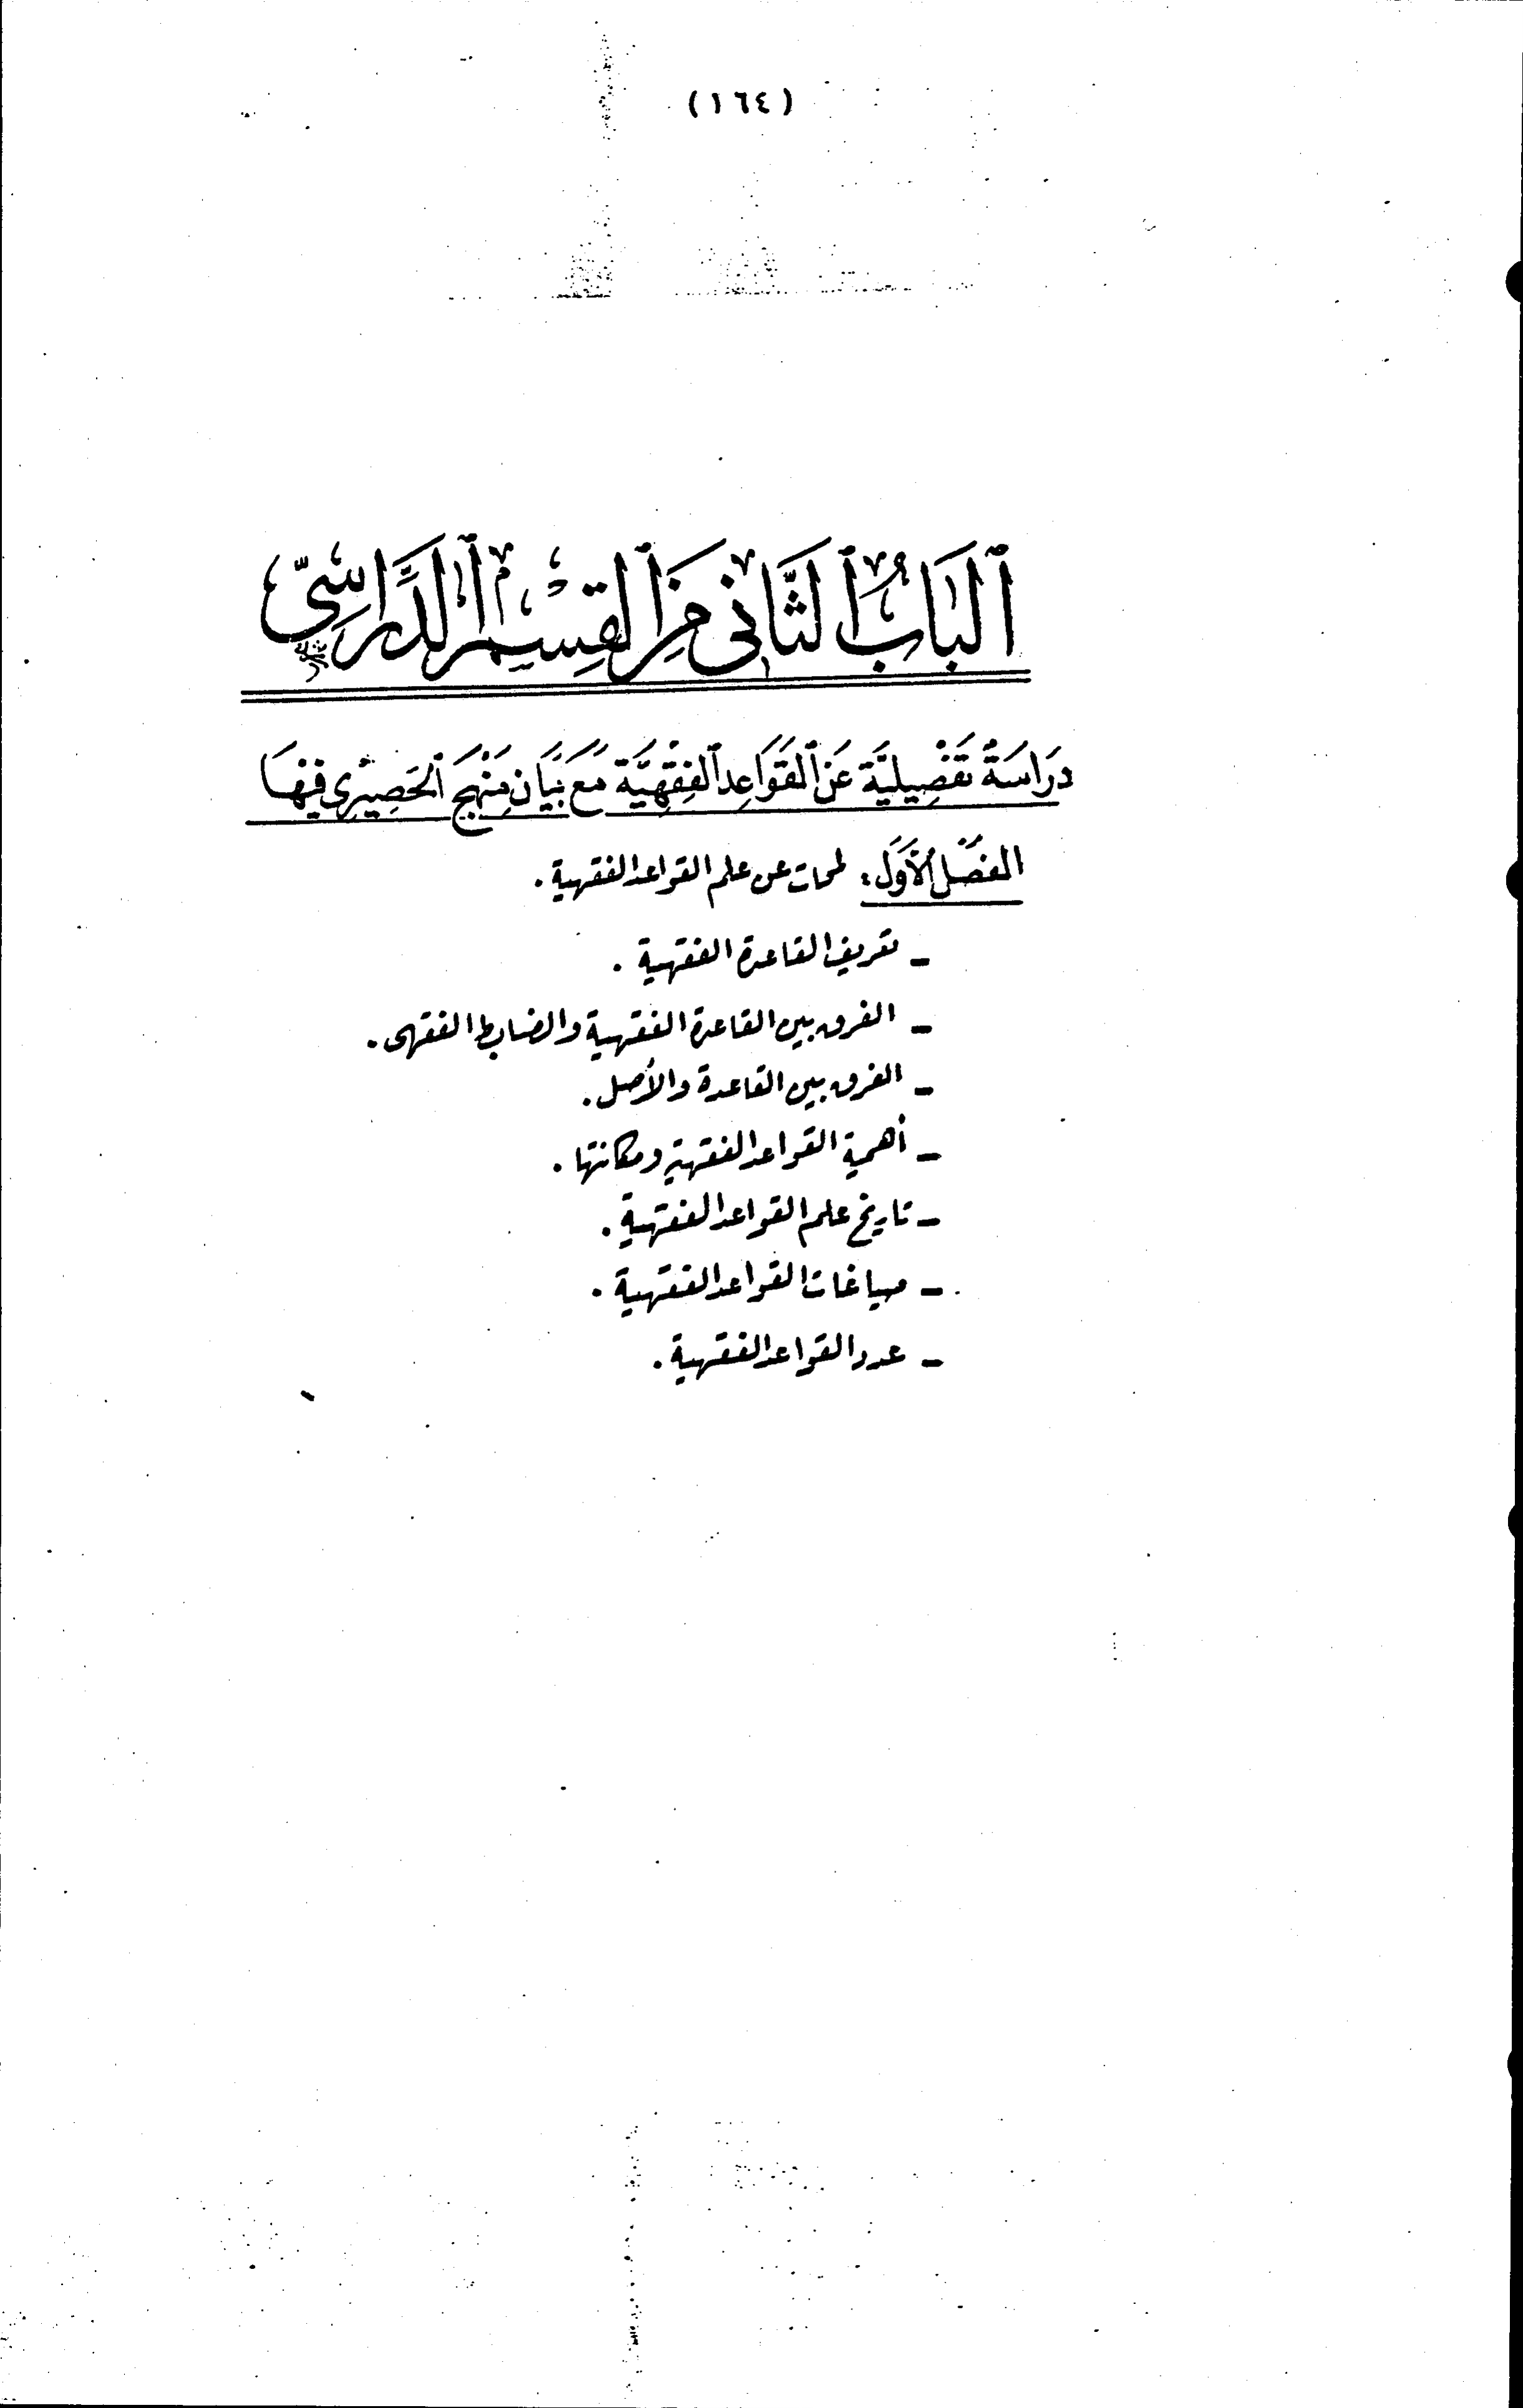 (١٦٤)
ٱلبَابُ ٱلثَّانِي مِنَ ٱلقِسْمِ ٱلدِّرَاسِيّ
دِرَاسَةٌ تَفْصِيلِيَّة عَنْ ٱلقَوَاعِد ٱلفِقْهِيَّة مَعَ بَيَان مَنْهَج ٱلحَصِيْرِي فِيْهَا
الفَصْل الأَوَّل : لمحات عن علم القواعد الفقهية .
- تعريف القاعدة الفقهية .
- الفرق بين القاعدة الفقهية والضابط الفقهى .
- الفرق بين القاعدة والأصل .
- أهمية القواعد الفقهية ومكانتها .
- تاريخ علم القواعد الفقهية .
- صياغات القواعد الفقهية .
- عدد القواعد الفقهية .